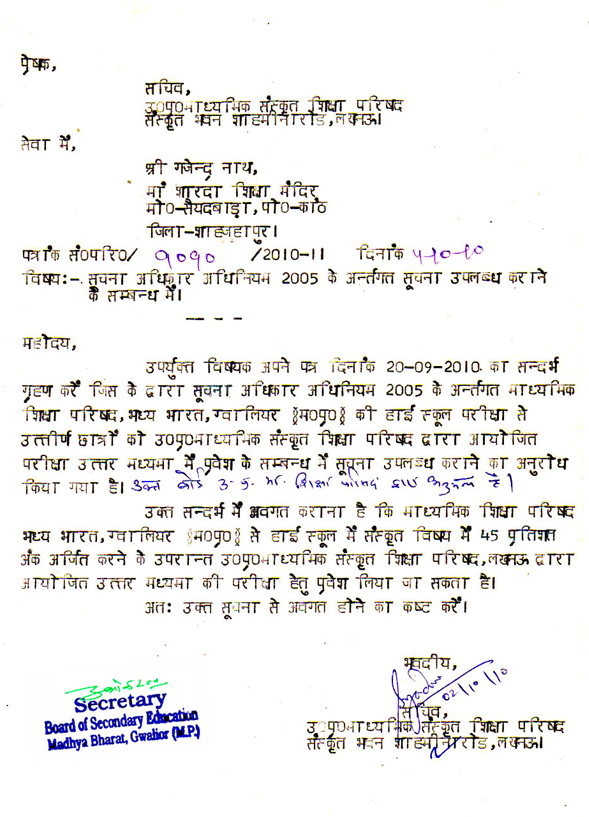 प्रेषक,
सचिव,
उ०प्र०माध्यमिक संस्कृत शिक्षा परिषद
संस्कृत भवन शाहमीनारोड,लखनऊ।
सेवा में,
श्री गजेन्द्र नाथ,
मां शारदा शिक्षा मंदिर
मो०-सैयदबाड़ा,पो०-कांठ
जिला-शाहजहांपुर।
पत्रांक सं०परि०/ ९०९० /2010-11 दिनांक
विषय:-. सूचना अधिकार अधिनियम 2005 के अर्न्तगत सूचना उपलब्ध कराने
के सम्बन्ध में।
महोदय,
उपर्युक्त विषयक अपने पत्र दिनांक 20-09-2010. का सन्दर्भ
गृहण करें जिस के द्वारा सूचना अधिकार अधिनियम 2005 के अर्न्तगत माध्यमिक
शिक्षा परिषद,मध्य भारत,ग्वालियर (म०प्र०) की हाई स्कूल परीक्षा से
उत्तीर्ण छात्रों को उ०प्र०माध्यमिक संस्कृत शिक्षा परिषद द्वारा आयोजित
परीक्षा उत्तर मध्यमा में प्रवेश के सम्बन्ध में सूचना उपलब्ध कराने का अनुरोध
किया गया है। उक्त बोर्ड उ. प्र. मा. शिक्षा परिषद द्वारा है।
उक्त सन्दर्भ में अवगत कराना है कि माध्यमिक शिक्षा परिषद
मध्य भारत,ग्वालियर (म०प्र०) से हाई स्कूल में संस्कृत विषय में 45 प्रतिशत
अंक अर्जित करने के उपरान्त उ०प्र०माध्यमिक संस्कृत शिक्षा परिषद,लखनऊ द्वारा
आयोजित उत्तर मध्यमा की परीक्षा हेतु प्रवेश लिया जा सकता है।
अत: उक्त सूचना से अवगत होने का कष्ट करें।
भवदीय,
02/10/10
सचिव,
उ०प्र०माध्यमिक संस्कृत शिक्षा परिषद
संस्कृत भवन शाहमीनारोड,लखनऊ।
Secretary
Board of Secondary Education
Madhya Bharat, Gwalior (M.P.)